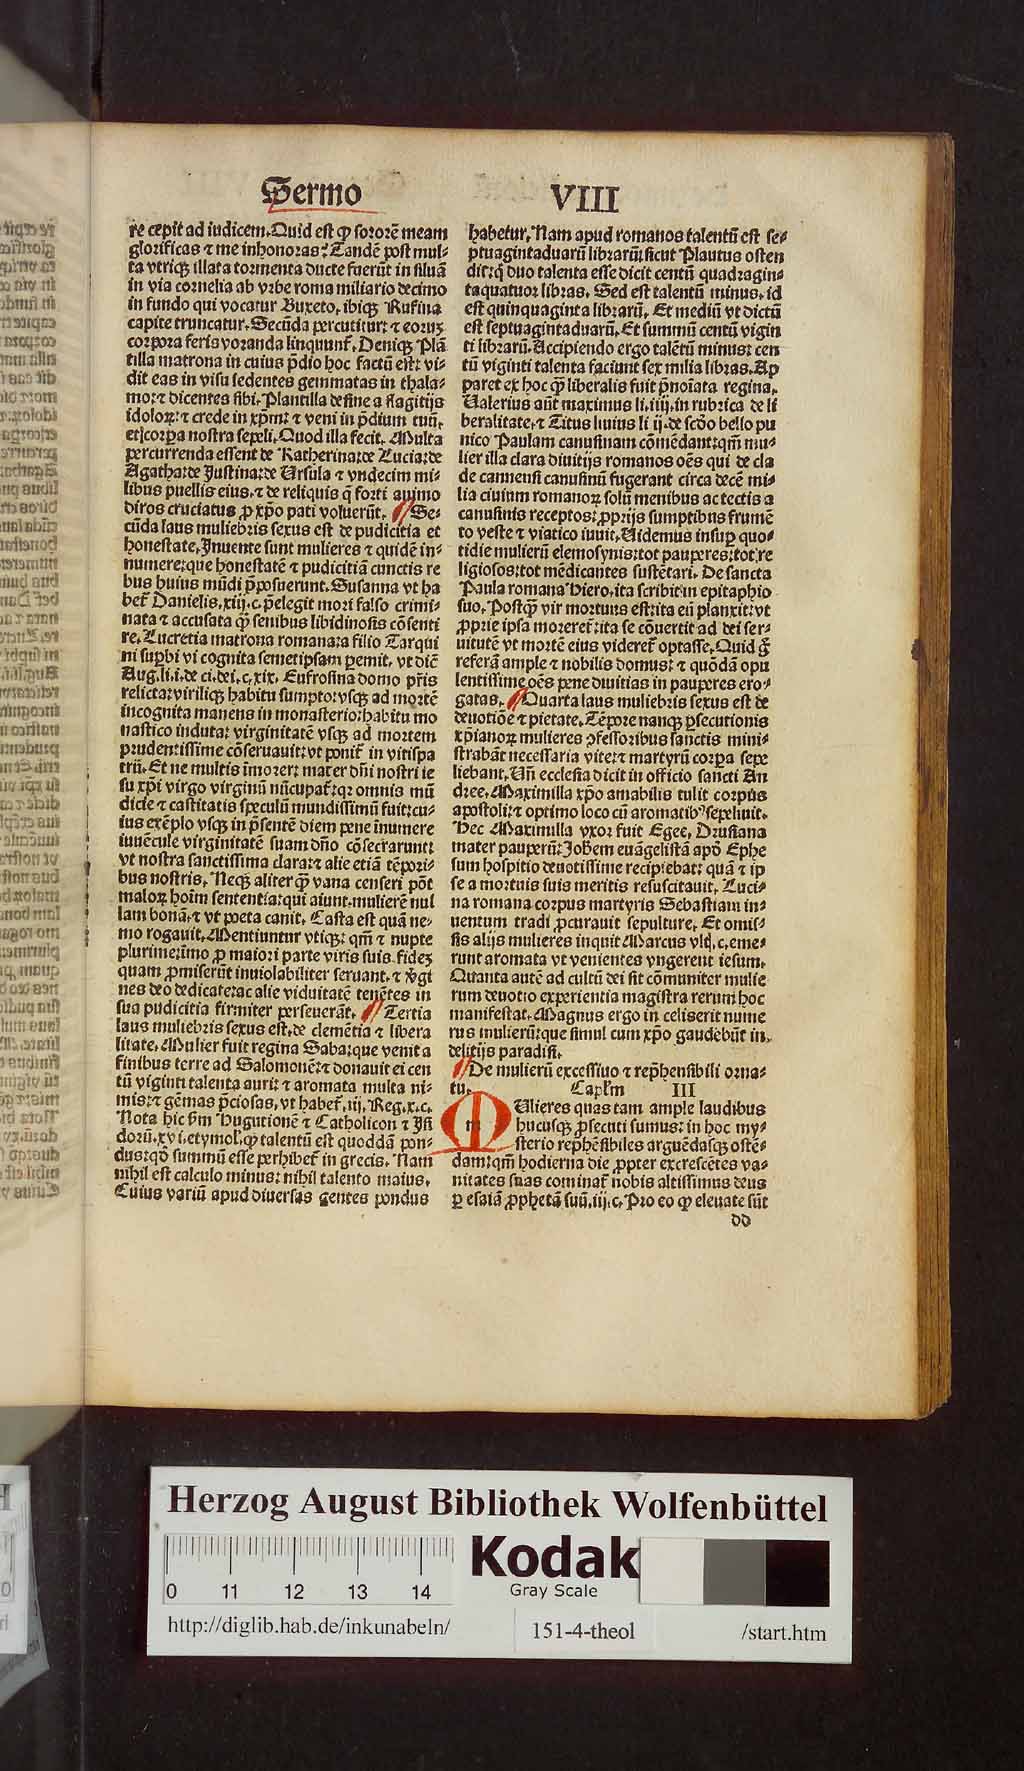 Sermo VIII
re cepit ad iudicem. Quid est ꝙ sororē meam
glorificas ⁊ me inhonoras? Tandē post mul-
ta vtriqꝫ illata tormenta ducte fuerūt in siluā
in via cornelia ab vrbe roma miliario decimo
in fundo qui vocatur Buxeto, ibiqꝫ Rufina
capite truncatur. Secūda percutitur: ⁊ eoruꝫ
corpora feris voranda linquunt᷑. Deniqꝫ Plā
tilla matrona in cuius p̄dio hoc factū est: vi-
dit eas in visu sedentes gemmatas in thala-
mo: ⁊ dicentes sibi. Plantilla desine a flagitijs
idoloꝝ: ⁊ crede in xp̄m: ⁊ veni in p̄dium tuū.
et corꝑa nostra sepeli. Quod illa fecit. Multa
percurrenda essent de Katherina: de Lucia: de
Agatha: de Justina: de Ursula ⁊ vndecim mi-
libus puellis eius. ⁊ de reliquis q̄ forti animo
diros cruciatus ꝓ xp̄o pati voluerūt. Se-
cūda laus muliebris sexus est de pudicitia et
honestate. Inuente sunt mulieres ⁊ quidē in-
numere: que honestatē ⁊ pudicitiā cunctis re
bus huius mūdi p̄posuerunt. Susanna vt ha
bet᷑ Danielis. xiij. c. p̄elegit mori falso crimi-
nata ⁊ accusata ꝙ̄ senibus libidinosis cōsenti
re. Lucretia matrona romana: a filio Tarqui
ni suꝑbi vi cognita semetipsam ꝑemit. vt dic̄
Aug. li. i. de ci. dei. c. xix. Eufrosina domo pr̄is
relicta: viriliqꝫ habitu sumpto: vsqꝫ ad mortē
incognita manens in monasterio: habitu mo
nastico induta: virginitatē vsqꝫ ad mortem
prudentissime cōseruauit: vt ponit᷑ in vitispa
trū. Et ne multis īmorer: mater dn̄i nostri ie
su xp̄i virgo virginū nūcupat᷑: qꝛ omnis mū
dicie ⁊ castitatis speculū mundissimū fuit: cu-
ius exēplo vsqꝫ in p̄sentē diem pene īnumere
iuuēcule virginitatē suam dn̄o cōsecrarunt:
vt nostra sanctissima clara: ⁊ alie etiā tēpori-
bus nostris. Neqꝫ aliter ꝙ̄ vana censeri pōt
maloꝝ hoīm sententia: qui aiunt. mulierē nul
lam bonā. ⁊ vt poeta canit. Casta est quā ne-
mo rogauit. Mentiuntur vtiqꝫ: qm̄ ⁊ nupte
plurime: īmo ꝓ maiori parte viris suis fideꝫ
quam ꝓmiserūt inuiolabiliter seruant. ⁊ v̄gi
nes deo dedicate: ac alie viduitatē tenētes in
sua pudicitia firmiter perseuerāt. Tertia
laus muliebris sexus est. de clemētia ⁊ libera
litate. Mulier fuit regina Saba: que venit a
finibus terre ad Salomonē: ⁊ donauit ei cen
tū viginti talenta auri: ⁊ aromata multa ni-
mis: ⁊ gēmas p̄ciosas, vt habet᷑. iij. Reg. x. c.
Nota hic s̄m Hugutionē ⁊ Catholicon ⁊ Isi
dorū. xvi. etymol. ꝙ talentū est quoddā pon-
dus: qd̄ summū esse perhibet᷑ in grecis. Nam
nihil est calculo minus: nihil talento maius.
Cuius variū apud diuersas gentes pondus
habetur. Nam apud romanos talentū est se-
ptuagintaduarū librarū: sicut Plautus osten
dit: q̄ duo talenta esse dicit centū quadragin-
taquatuor libras. Sed est talentū minus. id
est quinquaginta librarū. Et mediū vt dictū
est septuagintaduarū. Et summū centū vigin
ti librarū. Accipiendo ergo talētū minus: cen
tū viginti talenta faciunt sex milia libras. Ap
paret ex hoc ꝙ̄ liberalis fuit p̄noīata regina.
Ualerius aūt maximus li. iiij. in rubrica de li
beralitate. ⁊ Titus liuius li ij. de scd̄o bello pu
nico Paulam canusinam cōmēdant: qm̄ mu-
lier illa clara diuitijs romanos oēs qui de cla
de cannensi canusinū fugerant circa decē mi-
lia ciuium romanoꝝ solū menibus ac tectis a
canusinis receptos: ꝓprijs sumptibus frumē
to veste ⁊ viatico iuuit. Uidemus insuꝑ quo-
tidie mulierū elemosynis: tot pauperes: tot re
ligiosos: tot mēdicantes sustētari. De sancta
Paula romana Hiero. ita scribit in epitaphio
suo. Postꝙ̄ vir mortuus est: ita eū planxit: vt
ꝓprie ipsa moreret᷑: ita se cōuertit ad dei ser-
uitutē vt mortē eius videret᷑ optasse. Quid g̊
referā ample ⁊ nobilis domus: ⁊ quōdā opu
lentissime oēs pene diuitias in pauperes ero-
gatas. Quarta laus muliebris sexus est de
deuotiōe ⁊ pietate. Tēpore nanqꝫ ꝑsecutionis
xp̄ianoꝝ mulieres ꝯfessoribus sanctis mini-
strabāt necessaria vite: ⁊ martyrū corꝑa sepe
liebant. Un̄ ecclesia dicit in officio sancti An
dree. Maximilla xp̄o amabilis tulit corpus
apostoli: ⁊ optimo loco cū aromatibꝰ sepeliuit.
Hec Maximilla vxor fuit Egee. Drusiana
mater pauperū: Johem euāgelistā apd̄ Ephe
sum hospitio deuotissime recipiebat: quā ⁊ ip
se a mortuis suis meritis resuscitauit. Luci-
na romana corpus martyris Sebastiani in-
uentum tradi ꝓcurauit sepulture. Et omis-
sis alijs mulieres inquit Marcus vlti. c. eme-
runt aromata vt venientes vngerent iesum.
Quanta autē ad cultū dei sit cōmuniter mulie
rum deuotio experientia magistra rerum hoc
manifestat. Magnus ergo in celis erit nume
rus mulierū: que simul cum xp̄o gaudebūt in
delitijs paradisi.
De mulierū excessiuo ⁊ rep̄hensibili orna-
tu. Caplm̄ III
MUlieres quas tam ample laudibus
hucusqꝫ ꝓsecuti sumus: in hoc my-
sterio rep̄hēsibiles arguēdasqꝫ ostē-
dam: qm̄ hodierna die ꝓpter excrescētes va-
nitates suas cominat᷑ nobis altissimus deus
ꝑ esaiā ꝓphetā suū. iij. c. Pro eo ꝙ eleuate sūt
dd
Herzog August Bibliothek Wolfenbüttel
0 11 12 13 14
Kodak
Gray Scale
http://diglib.hab.de/inkunabeln/ 151-4-theol /start.htm